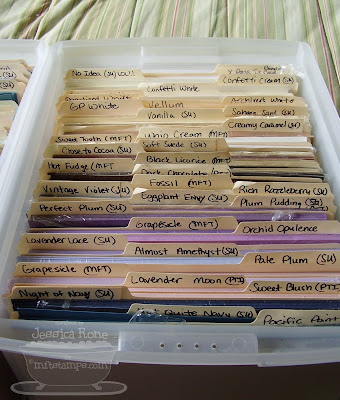 No Idea (SU) LOL!!
Confetti White
Confetti Cream (SU)
GP White
Vellum
Archival White
Vanilla (SU)
Sahara Sand (SU)
Whip Cream (MFT)
Creamy Caramel (SU)
Sweet Tooth (MFT)
Soft Suede (SU)
Close to Cocoa (SU)
Black Licorice (MFT)
Hot Fudge (MFT)
Dark Chocolate
Fossil (MFT)
Vintage Violet (SU)
Eggplant Envy (SU)
Rich Razzleberry (SU)
Perfect Plum (SU)
Plum Pudding (SU)
Grapesicle (MFT)
Orchid Opulence
Lavender Lace (SU)
Almost Amethyst (SU)
Pale Plum (SU)
Grapesicle (MFT)
Lavender Moon (PTI)
Sweet Blush (PTI)
Night of Navy (SU)
Not Quite Navy (SU)
Pacific Point
Jessica Rone
mftstamps.com